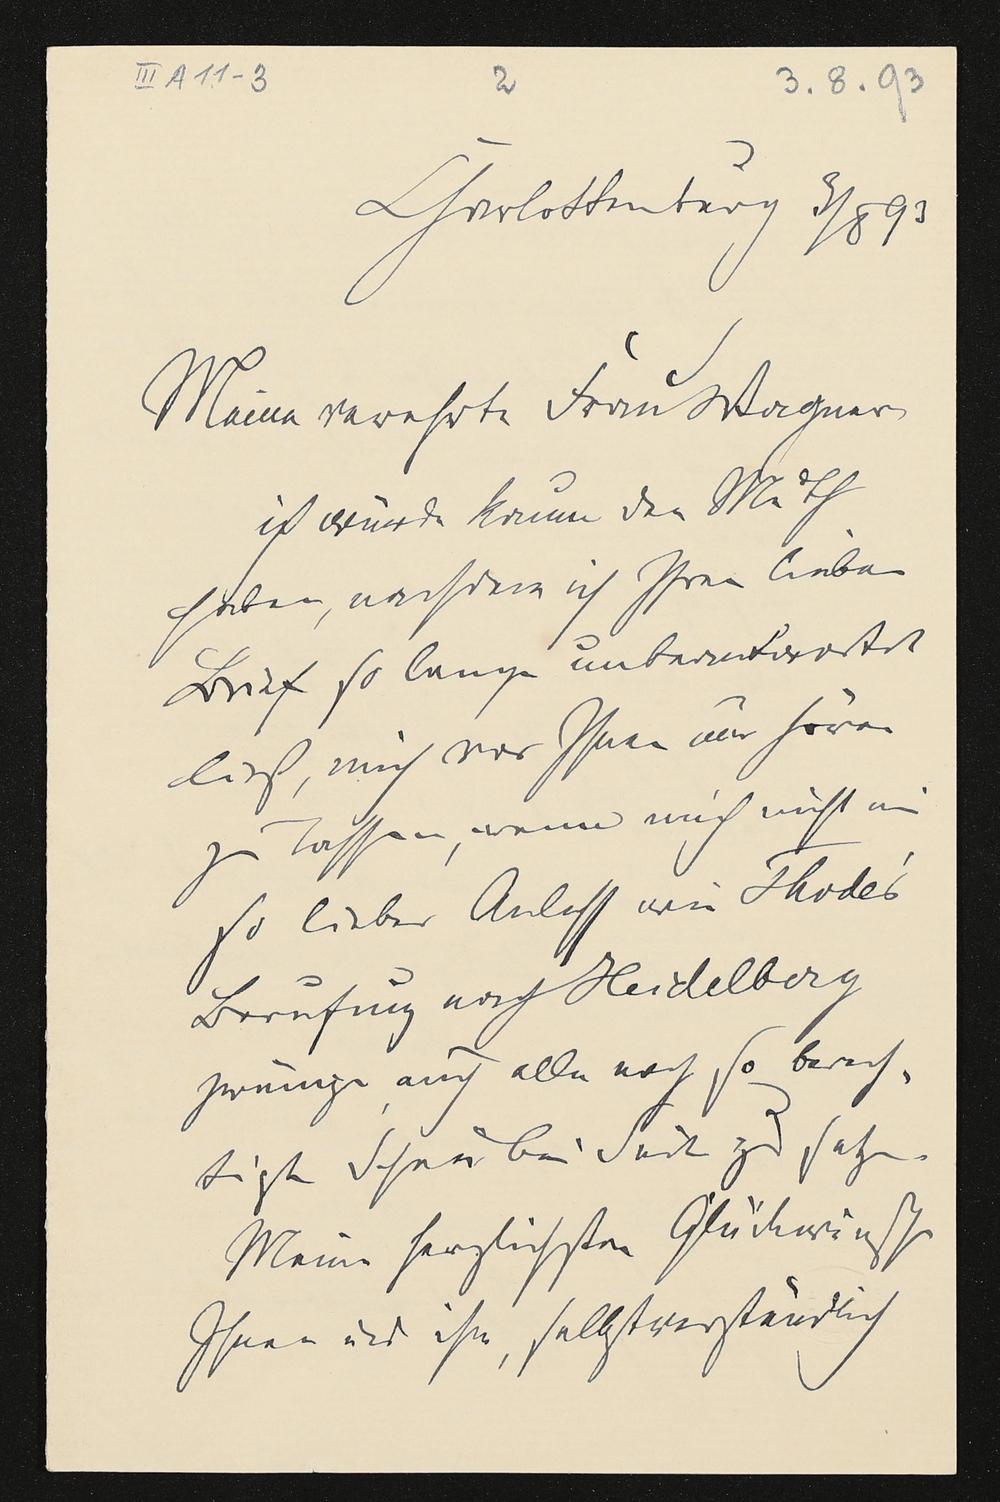 III A 11-3 2 3.8.93
Charlottenburg 3/8 93
Meine verehrte Frau Wagner
ich würde kaum den Muth
haben, nachdem ich Ihren lieben
Brief so lange unbeantwortet
ließ, mich vor Ihnen hören
zu lassen, wenn mich nicht ein
so lieber Anlass wie Thode's
Berufung nach Heidelberg
zwänge, auch alle noch so berech-
tigte Scheu bei Seite zu setzen.
Meine herzlichsten Glückwünsche
Ihnen und ihm, selbstverständlich